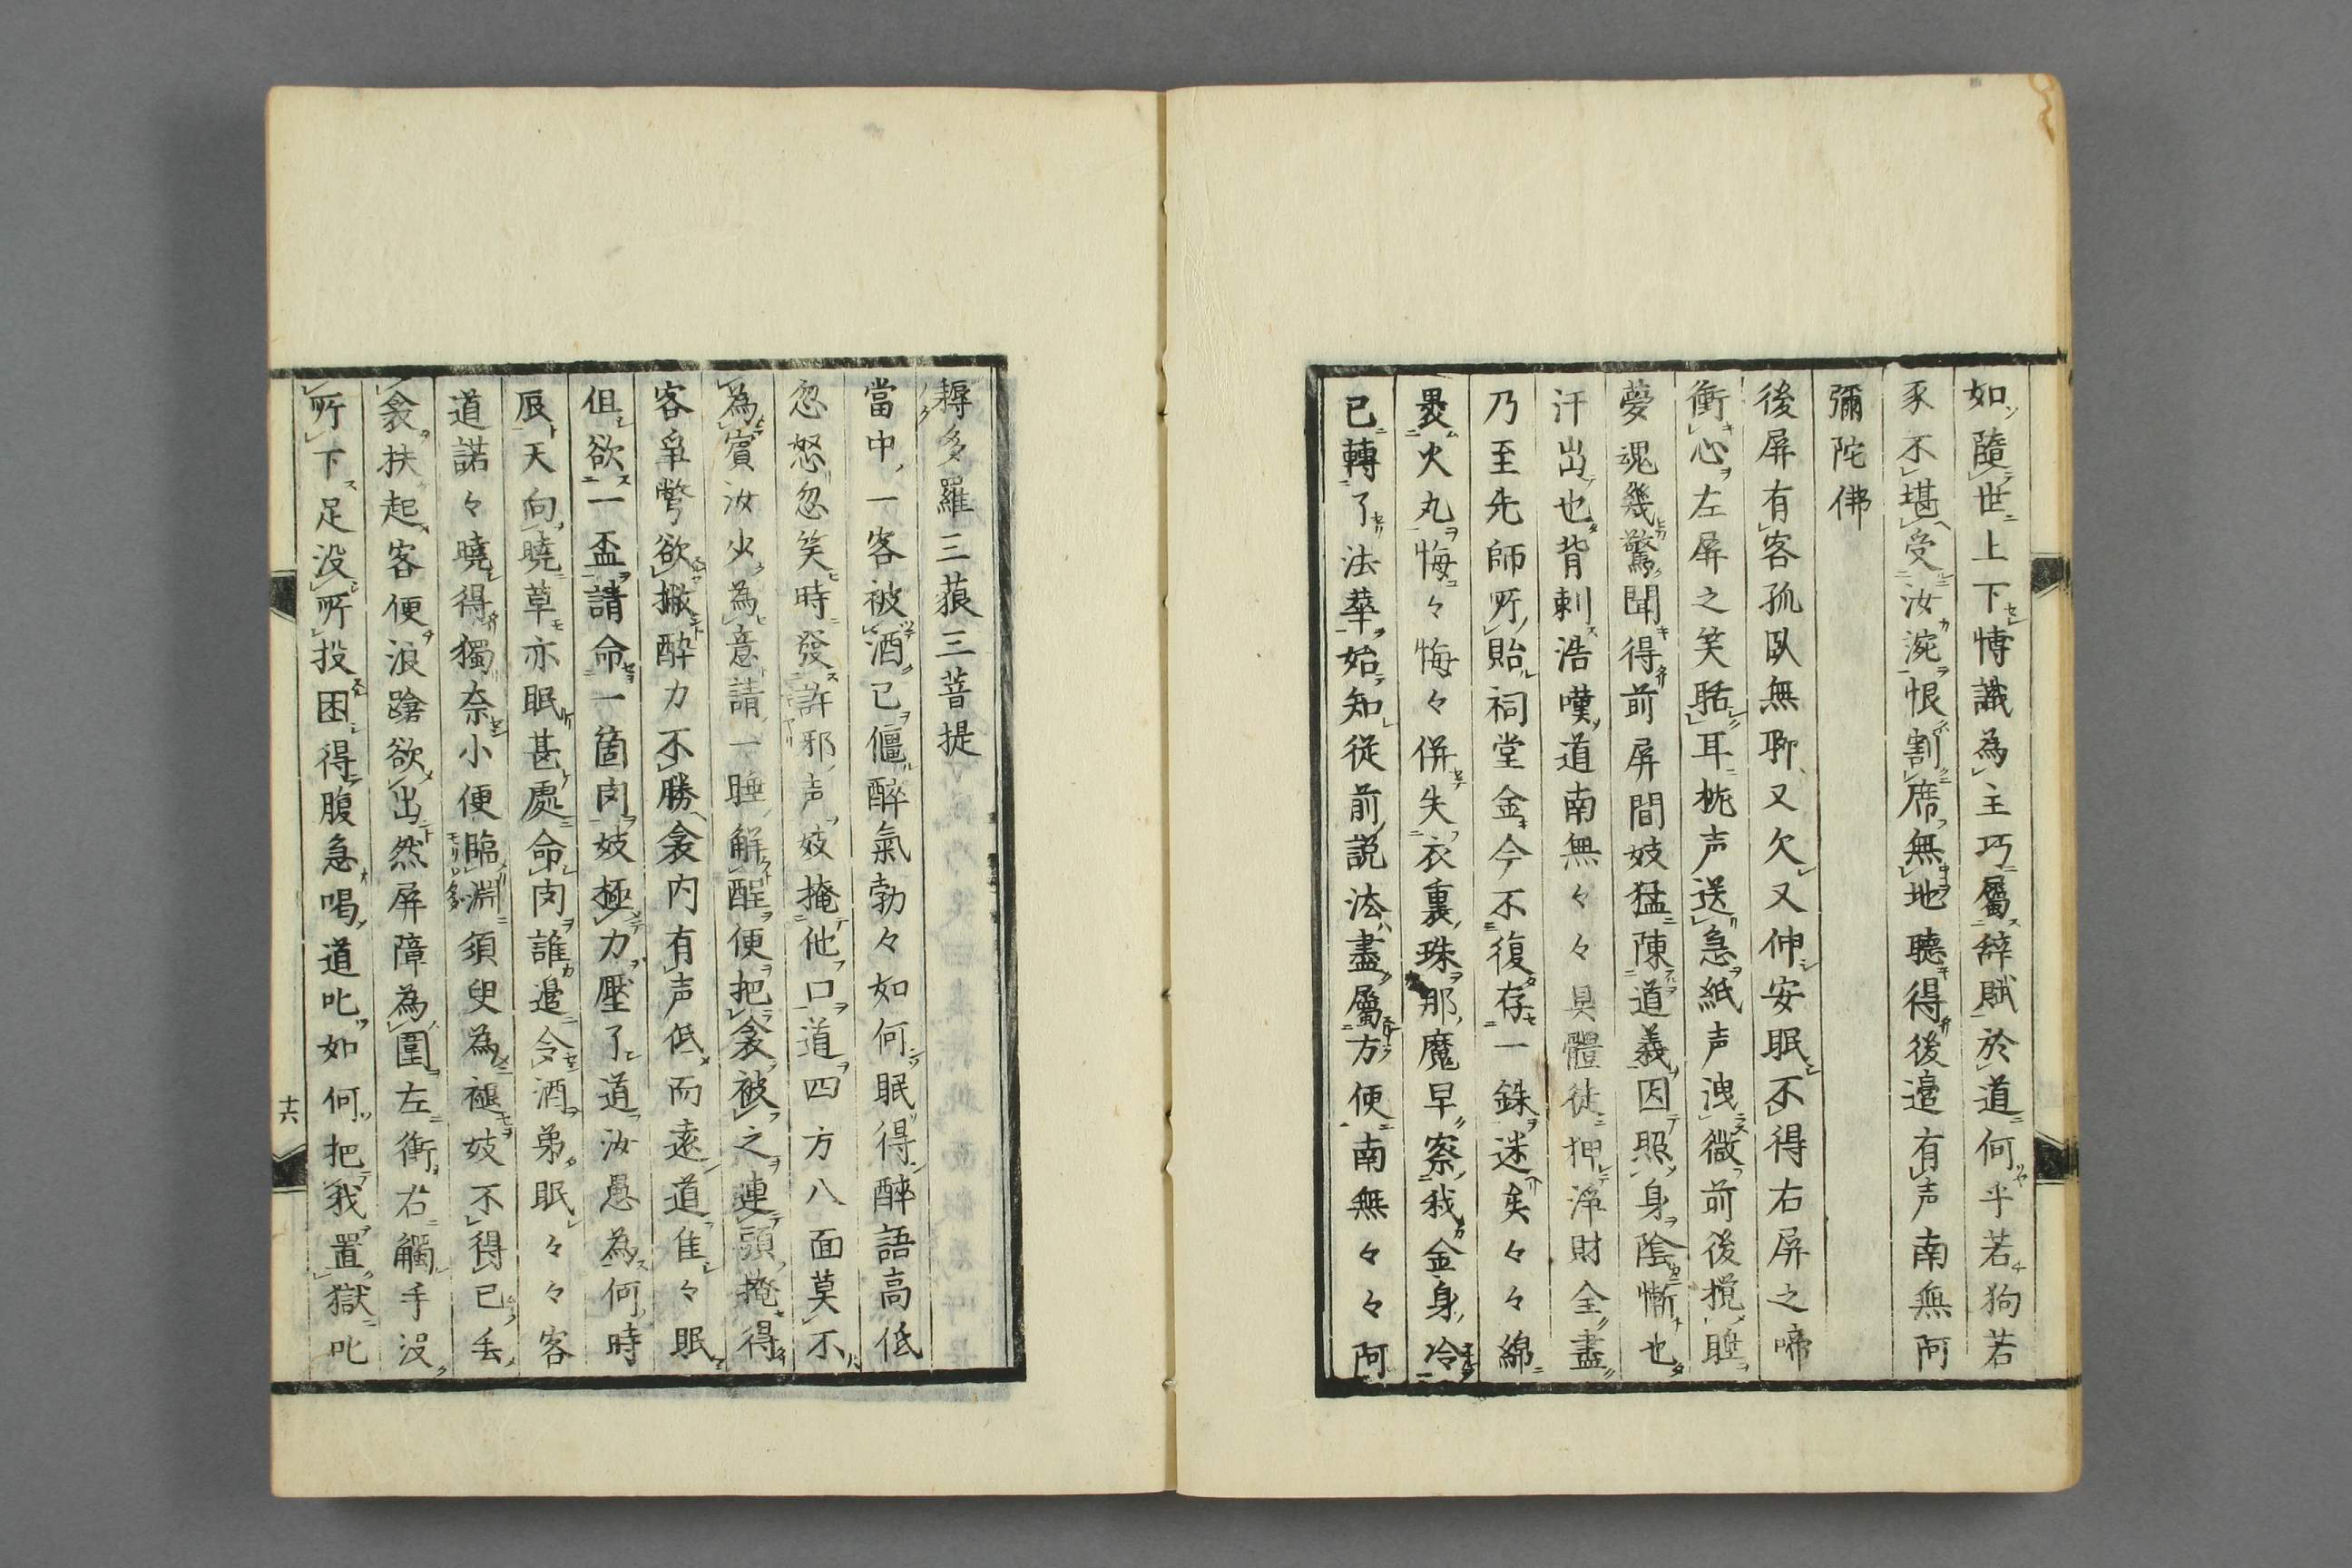 如隨世上下博識為主巧屬辭賦於道何乎若狗若
豕不堪受汝涴恨割席無地聽得後邉有声南無阿
彌陀佛
後屏有客孤臥無聊又欠又伸安眠不得右屏之啼
衝心左屏之笑聒耳枕声送急紙声洩微前後撹睡
夢魂幾驚聞得前屏間妓猛陳道義因照身陰慚也
汗出也背刺浩嘆道南無々々具體徒狎淨財全盡
乃至先師所貽祠堂金今不復存一銖迷矣々々綿
褁火丸悔々悔々併失衣裏珠那魔早察我金身冷
已轉了法華始知從前説法盡屬方便南無々々阿
耨多羅三藐三菩提
當中一客被酒已僵醉氣勃々如何眠得醉語高低
忽怒忽笑時發訴邪声妓掩他口道四方八面莫不
為賓汝少為意請一睡解酲便把衾被之連頭掩得
客窂欝欲撇醉力不勝衾内有声低而遠道隹々眠
但欲一盃請命一箇肉妓極力壓了道汝愚為何時
辰天向曉草亦眠甚處命肉誰邉令酒弟眠々々客
道諾々曉得獨奈小便臨淵須臾為褪妓不得已丢
衾扶起客便浪蹌欲出然屏障為圍左衝右觸手没
所下足没所投困得腹急喝道叱如何把我置獄叱
十六